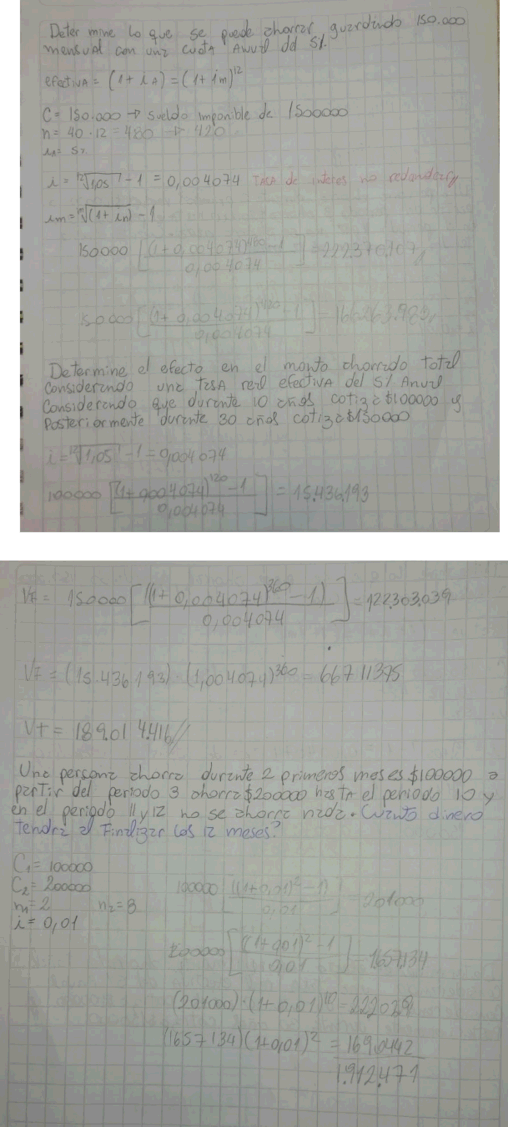 Determine lo que se puede ahorrar guardando 150.000
mensual con una cuota Anual del 5%.
efectiva = (1 + iA) = (1 + im)^12
C = 150.000 → sueldo imponible de 1500000
n = 40 · 12 = 480 → 420
i = 5%
i = ¹²√1,05 - 1 = 0,004074 TASA de interes no redondear
im = ᵐ√(1 + in) - 1
150000 [(1 + 0,004074)^480 - 1 / 0,004074] = 222.376.107
150.000 [(1 + 0,004074)^420 - 1 / 0,004074] = 166.263.983
Determine el efecto en el monto ahorrado total
considerando una tasa real efectiva del 5% Anual
Considerando que durante 10 años cotizó $100000 y
Posteriormente durante 30 años cotizó $150000
i = ¹²√1,05 - 1 = 0,004074
100.000 [(1 + 0,004074)^120 - 1 / 0,004074] = 15.436.193
VF = 150000 [((1 + 0,004074)^360 - 1) / 0,004074] = 122.303.039
VF = (15.436.193) · (1,004074)^360 = 66711375
Vt = 189.014.416 //
Una persona ahorra durante 2 primeros meses $100000 a
partir del periodo 3 ahorra $200000 hasta el periodo 10 y
en el periodo 11 y 12 no se ahorra nada. Cuanto dinero
tendra al Finalizar los 12 meses?
C1 = 100000
C2 = 200000
n1 = 2 n2 = 8
i = 0,01
100000 [((1 + 0,01)^2 - 1) / 0,01] 201000
200000 [((1 + 0,01)^2 - 1 / 0,01] = 1657134
(201000) · (1 + 0,01)^10 = 222029
(1657134)(1 + 0,01)^2 = 1690442
1.912.471